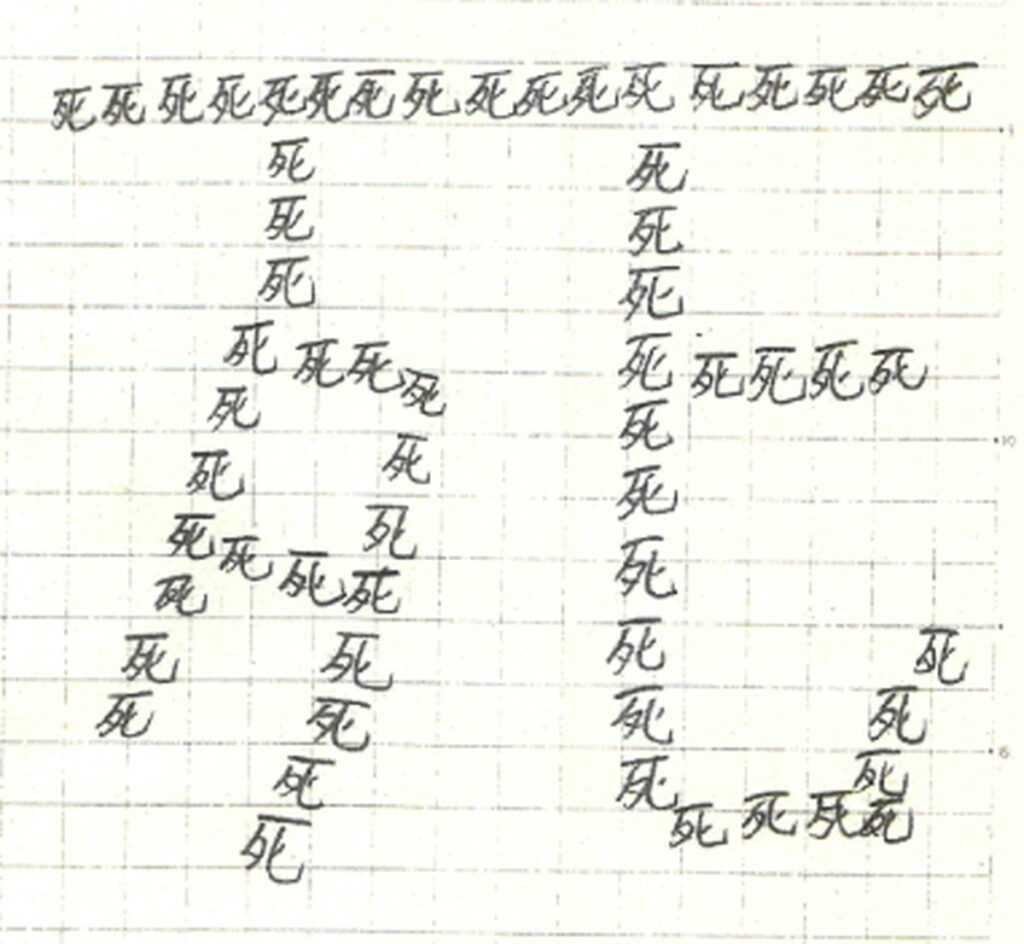 死死死死死死死死死死死死死死死死死
死死
死死
死死
死死死死死死死死死
死死
死死死
死死死死
死死死
死死死死
死死死死
死死死
死死死死死